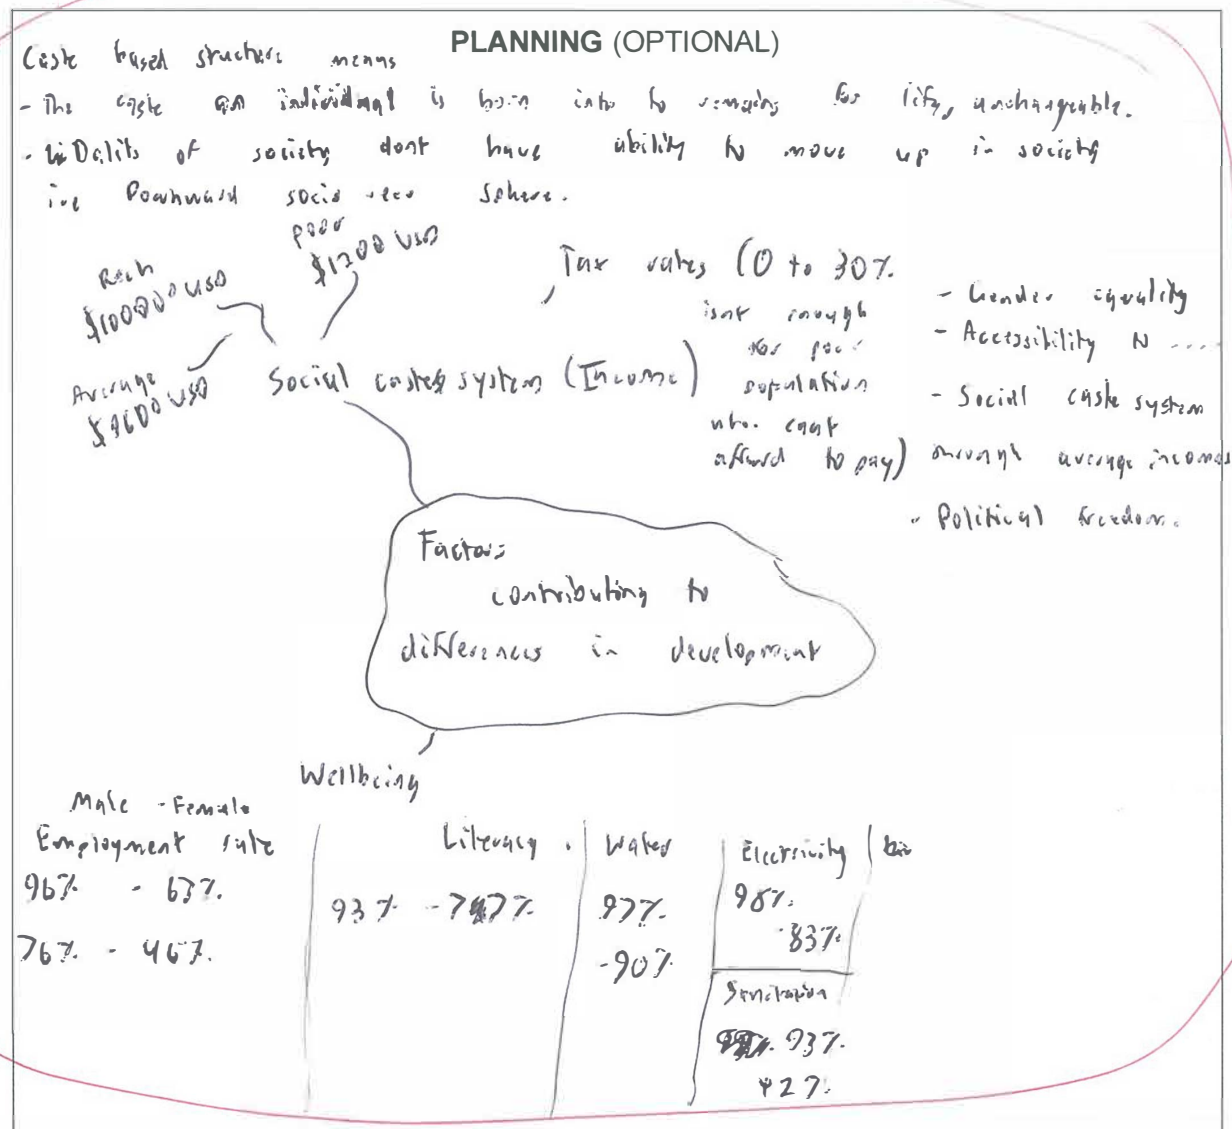 PLANNING (OPTIONAL)
Caste based structure means
- The caste an individual is born into to remains for life, unchangeable.
- Dalits of society dont have ability to move up in society
i.e Downward socio sphere.
Rich
$100000 USD
poor
$1200 USD
Average
$9600 USD
Social caste system (Income)
Tax rates (0 to 30%
isnt enough
for poor
population
who cant
afford to pay)
- Gender equality
- Accessibility to ....
- Social caste system
through average incomes
- Political freedom.
Factors
contributing to
differences in development
Wellbeing
Male - Female
Employment rate
96% - 63%
76% - 46%
Literacy
93% - 77%
Water
97%
-90%
Electricity
98%
-83%
Sanitation
93%
42%